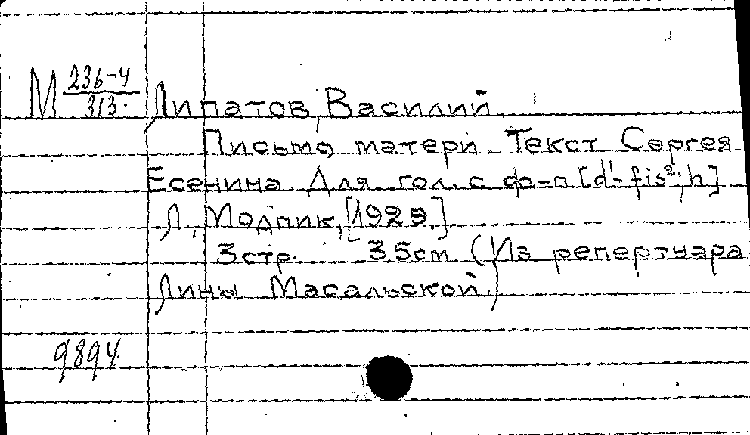 М 236-4/313
Липатов, Василий
Письмо матери. Текст Сергея
Есенина. Для гол. с ф-п [d'-fis²; h]
Л., Модпик, [1929.]
3 стр. 35 см (Из репертуара
Лины Масальской)
9894